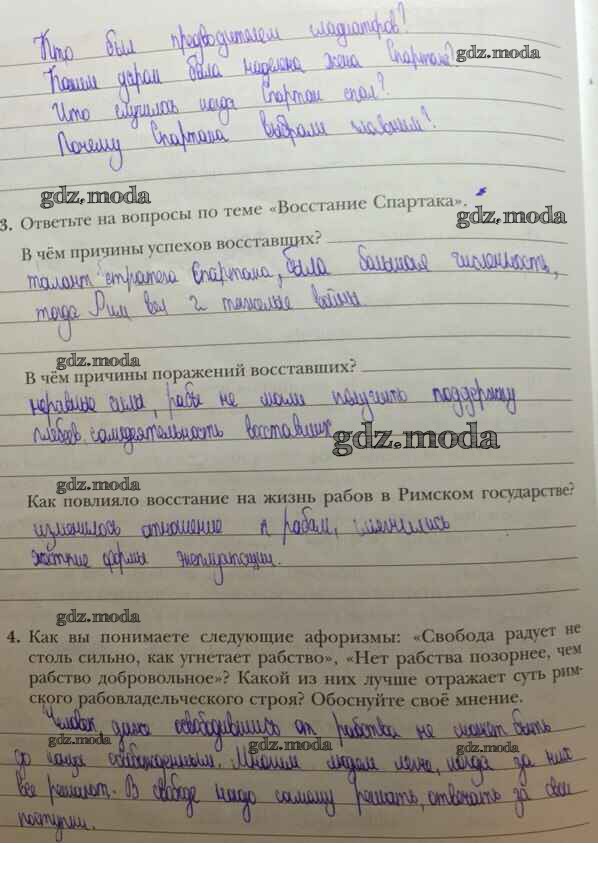 Кто был предводителем гладиаторов?
gdz.moda
Каким даром была наделена жена Спартака?
Что случилось когда Спартак спал?
Почему Спартака выбрали главным?
gdz.moda
3. Ответьте на вопросы по теме «Восстание Спартака».
gdz.moda
В чём причины успехов восставших?
талант стратега Спартака, была большая численность,
тогда Рим вел 2 тяжелые войны
gdz.moda
В чём причины поражений восставших?
неравные силы, рабы не могли получить поддержку
плебов, самодеятельность восставших
gdz.moda
gdz.moda
Как повлияло восстание на жизнь рабов в Римском государстве?
изменилось отношение к рабам, смягчились
жесткие формы эксплуатации.
gdz.moda
4. Как вы понимаете следующие афоризмы: «Свобода радует не
столь сильно, как угнетает рабство», «Нет рабства позорнее, чем
рабство добровольное»? Какой из них лучше отражает суть рим-
ского рабовладельческого строя? Обоснуйте своё мнение.
Человек, даже освободившись от рабства не может быть
gdz.moda gdz.moda gdz.moda
до конца освобожденным. Многим людям легче, когда за них
все решают. В свободе надо самому решать, отвечать за свои
поступки.